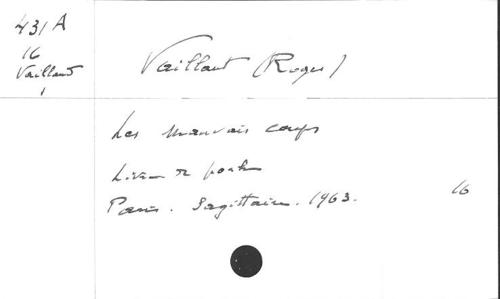 431 A
16
Vaillant
1
Vaillant (Roger)
Les mauvais coups
Livre de poche
Paris. Sagittaire. 1963.
16